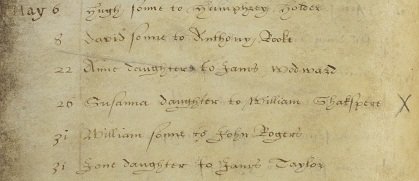 May 6 Hugh sonne to Humphrey Holder
8 David sonne to Anthony Poole
22 Anne daughter to James Wodward
26 Susanna daughter to William Shakspere X
31 William sonne to John Rogers
31 Jone daughter to James Taylor